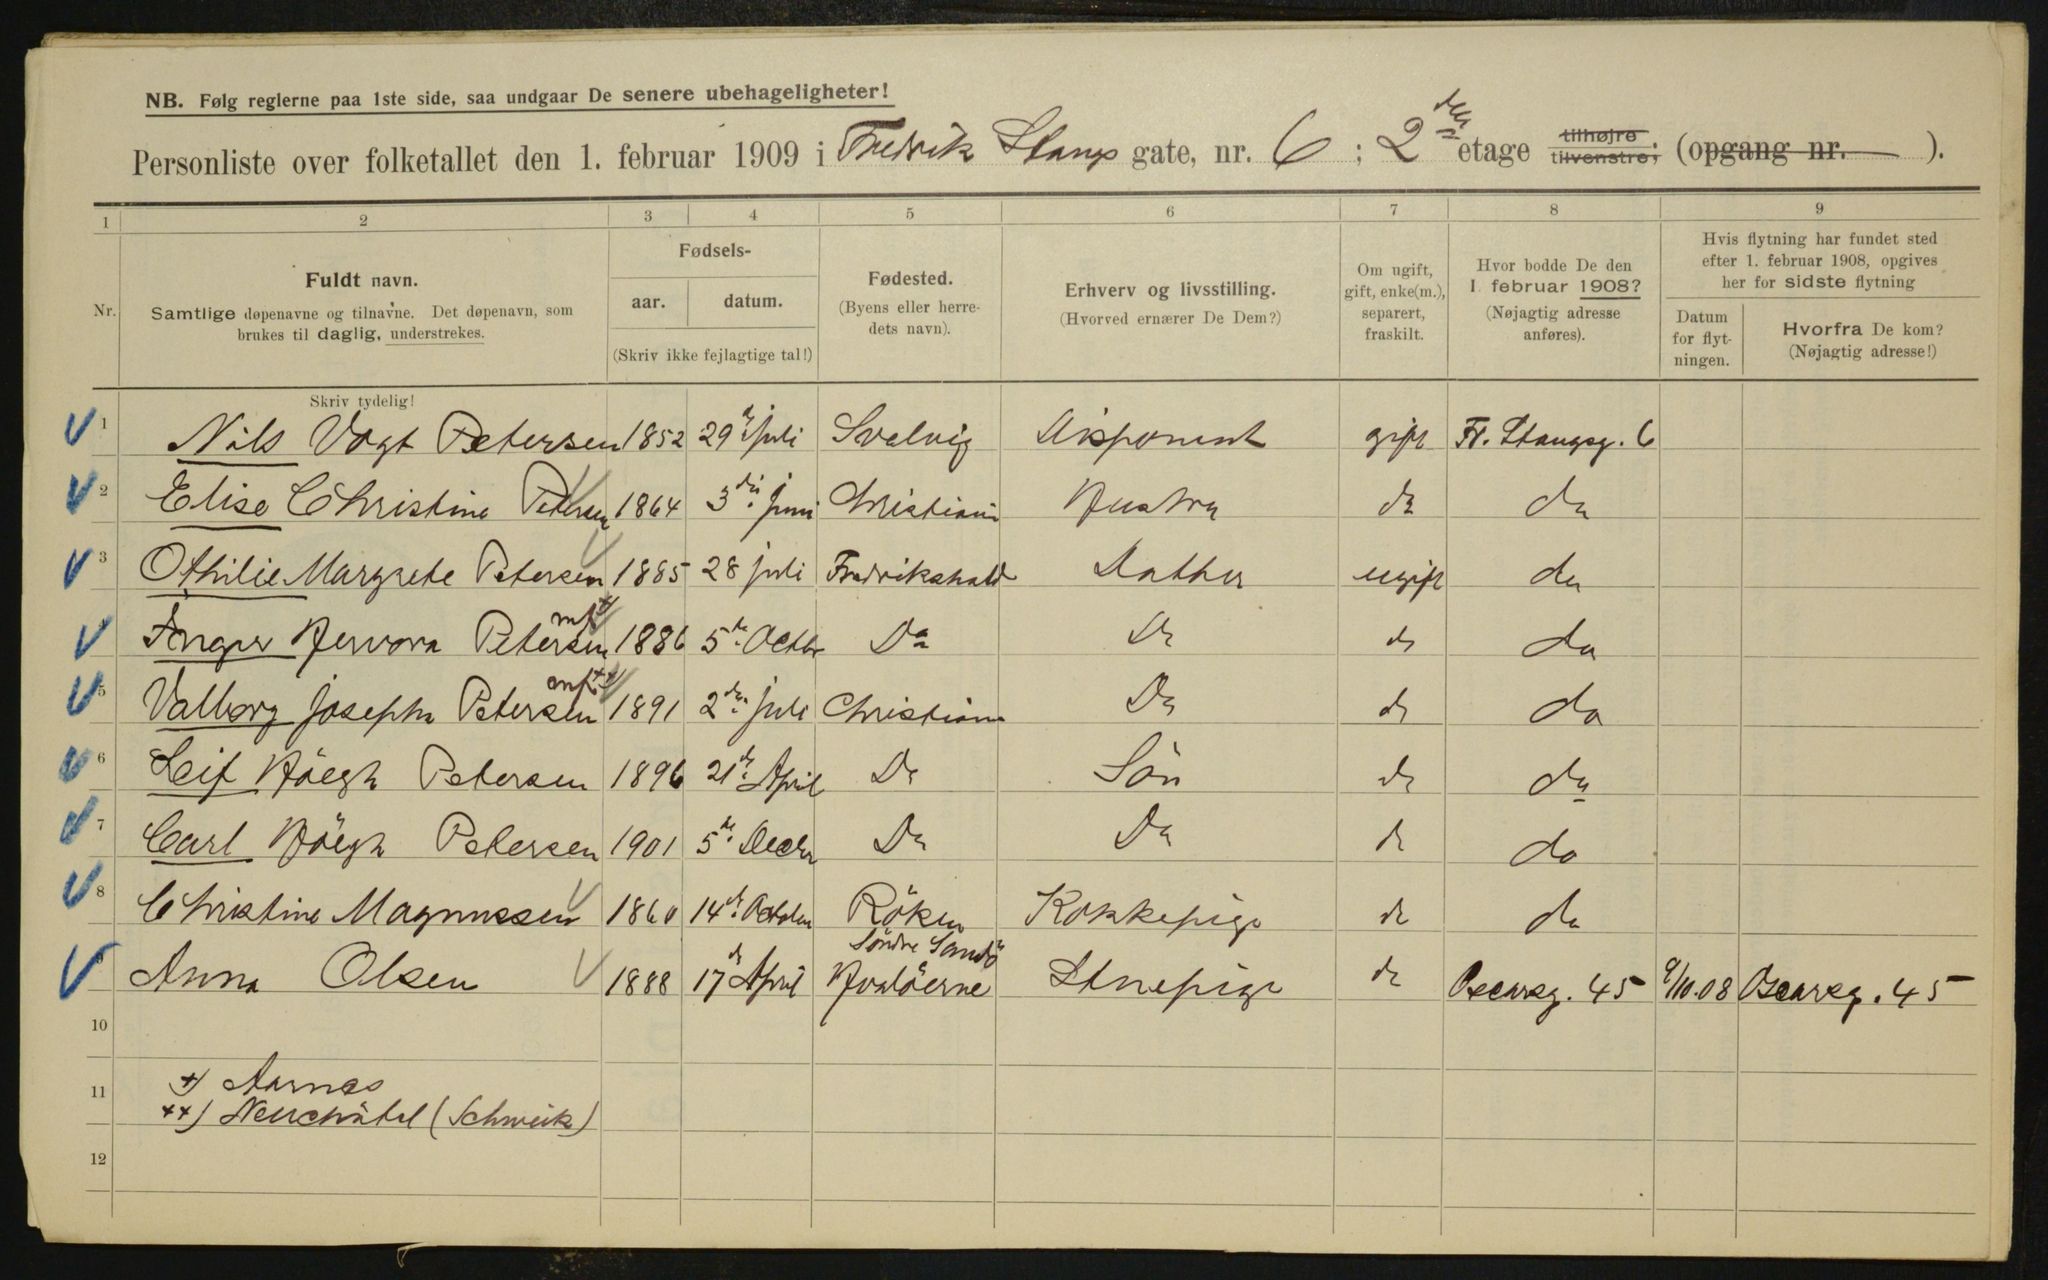 NB. Følg reglerne paa 1ste side, saa undgaar De senere ubehageligheter!
Personliste over folketallet den 1. februar 1909 i Fredrik Stangs gate, nr. 6 ; 2 den etage tilhøjre tilvenstre; (opgang nr. ).
1 2 3 4 5 6 7 8 9
Nr.
Fuldt navn.
Samtlige døpenavne og tilnavne. Det døpenavn, som
brukes til daglig, understrekes.
Fødsels-
aar. datum.
(Skriv ikke fejlagtige tal!)
Fødested.
(Byens eller herre-
dets navn).
Erhverv og livsstilling.
(Hvorved ernærer De Dem?)
Om ugift,
gift, enke(m.),
separert,
fraskilt.
Hvor bodde De den
1. februar 1908?
(Nøjagtig adresse
anføres).
Hvis flytning har fundet sted
efter 1. februar 1908, opgives
her for sidste flytning
Datum
for flyt-
ningen.
Hvorfra De kom?
(Nøjagtig adresse!)
Skriv tydelig!
1 Nils Vogt Petersen 1852 29de juli Svelvig Disponent gift Fr. Stangsg. 6
2 Elise Christine Petersen 1864 3die juni Christiania Hustru do do
3 Othilie Margrete Petersen 1885 28 juli Fredrikshald Datter ugift do
mf +
Inger Hervora Petersen 1886 5te Octbr Do Do do do
mf ++
5 Valborg Josepha Petersen 1891 2den juli Christiania Do do do
6 Leif Höegh Petersen 1896 21de April Do Sön do do
7 Carl Höegh Petersen 1901 5te Decbr Do Do do do
8 Christine Magnussen 1860 14de October Röken Kokkepige do do
Söndre Sandö
9 Anna Olsen 1888 17de April Hvalöerne Stuepige do Oscarsg. 45 9/10.08 Oscarsg. 45
10
11 +) Aarnes
++) Neuchâtel (Schweitz)
12